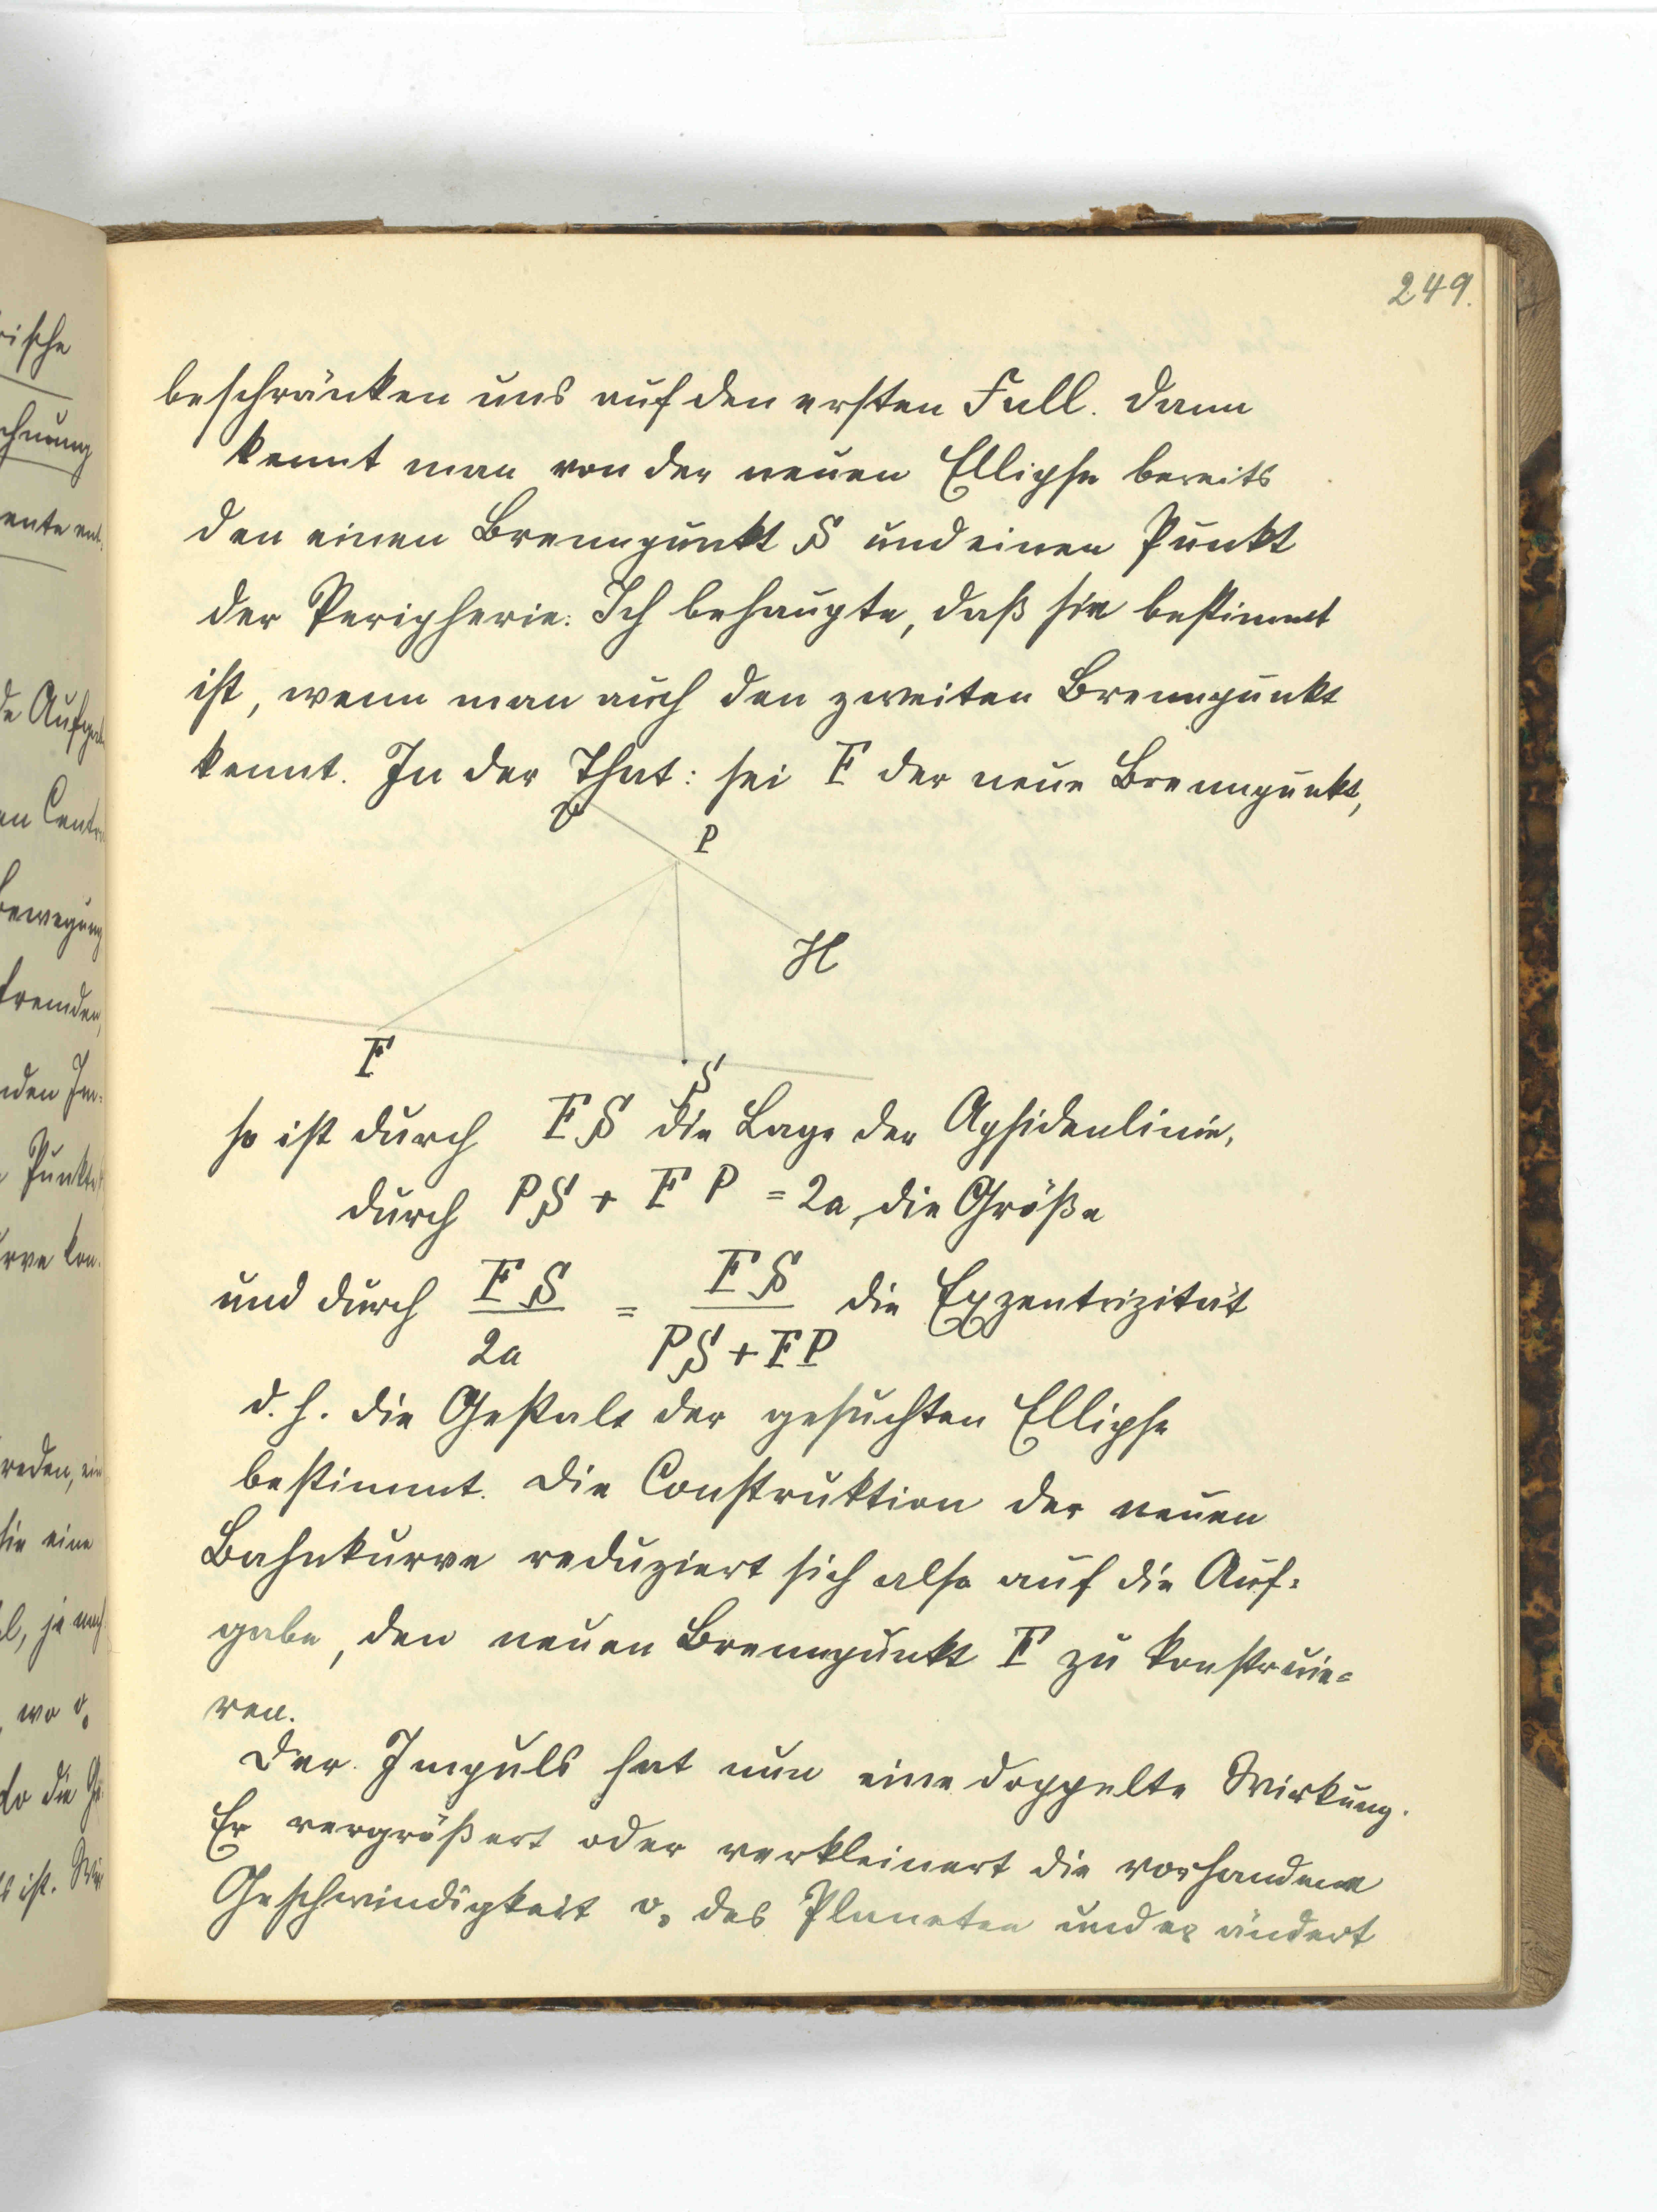 249.
beschränken uns auf den ersten Fall. Dann
kennt man von der neuen Ellipse bereits
den einen Brennpunkt S und einen Punkt
der Peripherie. Ich behaupte, daß sie bestimmt
ist, wenn man auch den zweiten Brennpunkt
kennt. In der That: sei F der neue Brennpunkt,
P
H
F
S
so ist durch FS die Lage der Apsidenlinie,
durch PS + FP = 2a, die Größe
und durch FS/2a = FS/PS+FP die Exzentrizität
d. h. die Gestalt der gesuchten Ellipse
bestimmt. Die Construktion der neuen
Bahnkurve reduziert sich also auf die Auf-
gabe, den neuen Brennpunkt F zu konstruie-
ren.
Der Impuls hat nun eine doppelte Wirkung.
Er vergrößert oder verkleinert die vorhandene
Geschwindigkeit v₀ des Planeten und er ändert